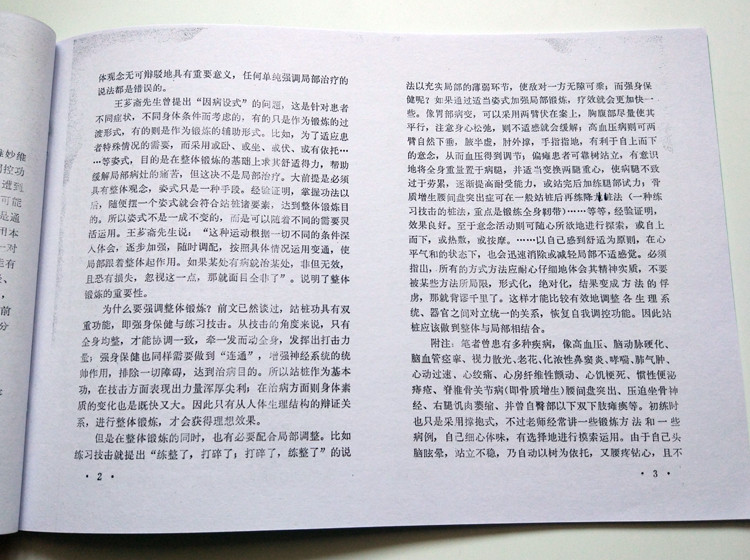 体观念无可辩驳地具有重要意义，任何单纯强调局部治疗的
说法都是错误的。
王芗斋先生曾提出“因病设式”的问题，这是针对患者
不同症状，不同身体条件而考虑的，有的只是作为锻炼的过
渡形式，有的则是作为锻炼的辅助形式。比如，为了适应患
者特殊情况的需要，而采用或卧、或坐、或伏、或有依托……
…等姿式，目的是在整体锻炼的基础上求其舒适得力，帮助
缓解局部病灶的痛苦，但这决不是局部治疗。大前提是必须
具有整体观念，姿式只是一种手段。经验证明，掌握功法以
后，随便摆一个姿式就会符合站桩诸要素，达到整体锻炼目
的。所以姿式不是一成不变的，而是可以随着不同的需要灵
活运用。王芗斋先生说：“这种运动根据一切不同的条件深
入体会，逐步加强，随时调配，按照具体情况运用变通，使
局部跟着整体起作用。如果某处有病就治某处，非但无效，
且恐有损失，忽视这一点，那就面目全非了”。说明了整体
锻炼的重要性。
为什么要强调整体锻炼？前文已然谈过，站桩功具有双
重功能，即强身保健与练习技击。从技击的角度来说，只有
全身均整，才能协调一致，牵一发而动全身，发挥出打击力
量；强身保健也同样需要做到“连通”，增强神经系统的统
帅作用，排除一切障碍，达到治病目的。所以站桩作为基本
功，在技击方面表现出力量浑厚尖利，在治病方面则身体素
质的变化也是既快又大。因此只有从人体生理结构的辩证关
系，进行整体锻炼，才会获得理想效果。
但是在整体锻炼的同时，也有必要配合局部调整。比如
练习技击就提出“练整了，打碎了；打碎了，练整了”的说
· 2 ·
法以充实局部的薄弱环节，使敌对一方无隙可乘；而强身保
健呢？如果通过适当姿式加强局部锻炼，疗效就会更加快一
些。像胃部病变，可以采用两臂伏在案上，胸腹部尽量使其
平行，注意身心松弛，则不适感就会缓解；高血压病则可两
臂自然下垂，腋半虚，肘外撑，手指指地，有利于自上而下
的意念，从而血压得到调节；偏瘫患者可靠树站立，有意识
地将全身重量置于病腿，并适当变换两腿重心，使病腿不致
过于劳累，逐渐提高耐受能力，或站完后加练腿部试力；骨
质增生腰间盘突出症可在一般站桩后再练降龙桩法（一种练
习技击的桩法，重点是锻炼全身韧带）……等等，经验证明，
效果良好。至于意念活动则可随心所欲地进行探索，或自上
而下，或热敷，或按摩。……以自己感到舒适为原则，在心
平气和的状态下，也会迅速消除或减轻局部不适感觉。必须
指出，所有的方式方法应耐心仔细地体会其精神实质，不要
被某些方法所局限，形式化，绝对化，结果变成方法的俘
虏，那就背谬千里了。这样才能比较有效地调整各生理系
统、器官之间对立统一的关系，恢复自我调控功能。因此站
桩应该做到整体与局部相结合。
附注：笔者曾患有多种疾病，像高血压、脑动脉硬化、
脑血管痉挛、视力散光、老花、化浓性鼻窦炎、哮喘、肺气肿、
心动过速、心绞痛、心房纤维性颤动、心肌梗死、惯性便泌
痔疮、脊椎骨关节病（即骨质增生）腰间盘突出、压迫坐骨神
经、右腿肌肉萎缩、并曾自臀部以下双下肢瘫痪等。初练时
也只是采用撑抱式，不过老师经常讲一些锻炼方法和一些
病例，自己细心体味，有选择地进行摸索运用。由于自己头
脑眩晕，站立不稳，乃自动以树为依托，又腰疼钻心，且不
· 3 ·